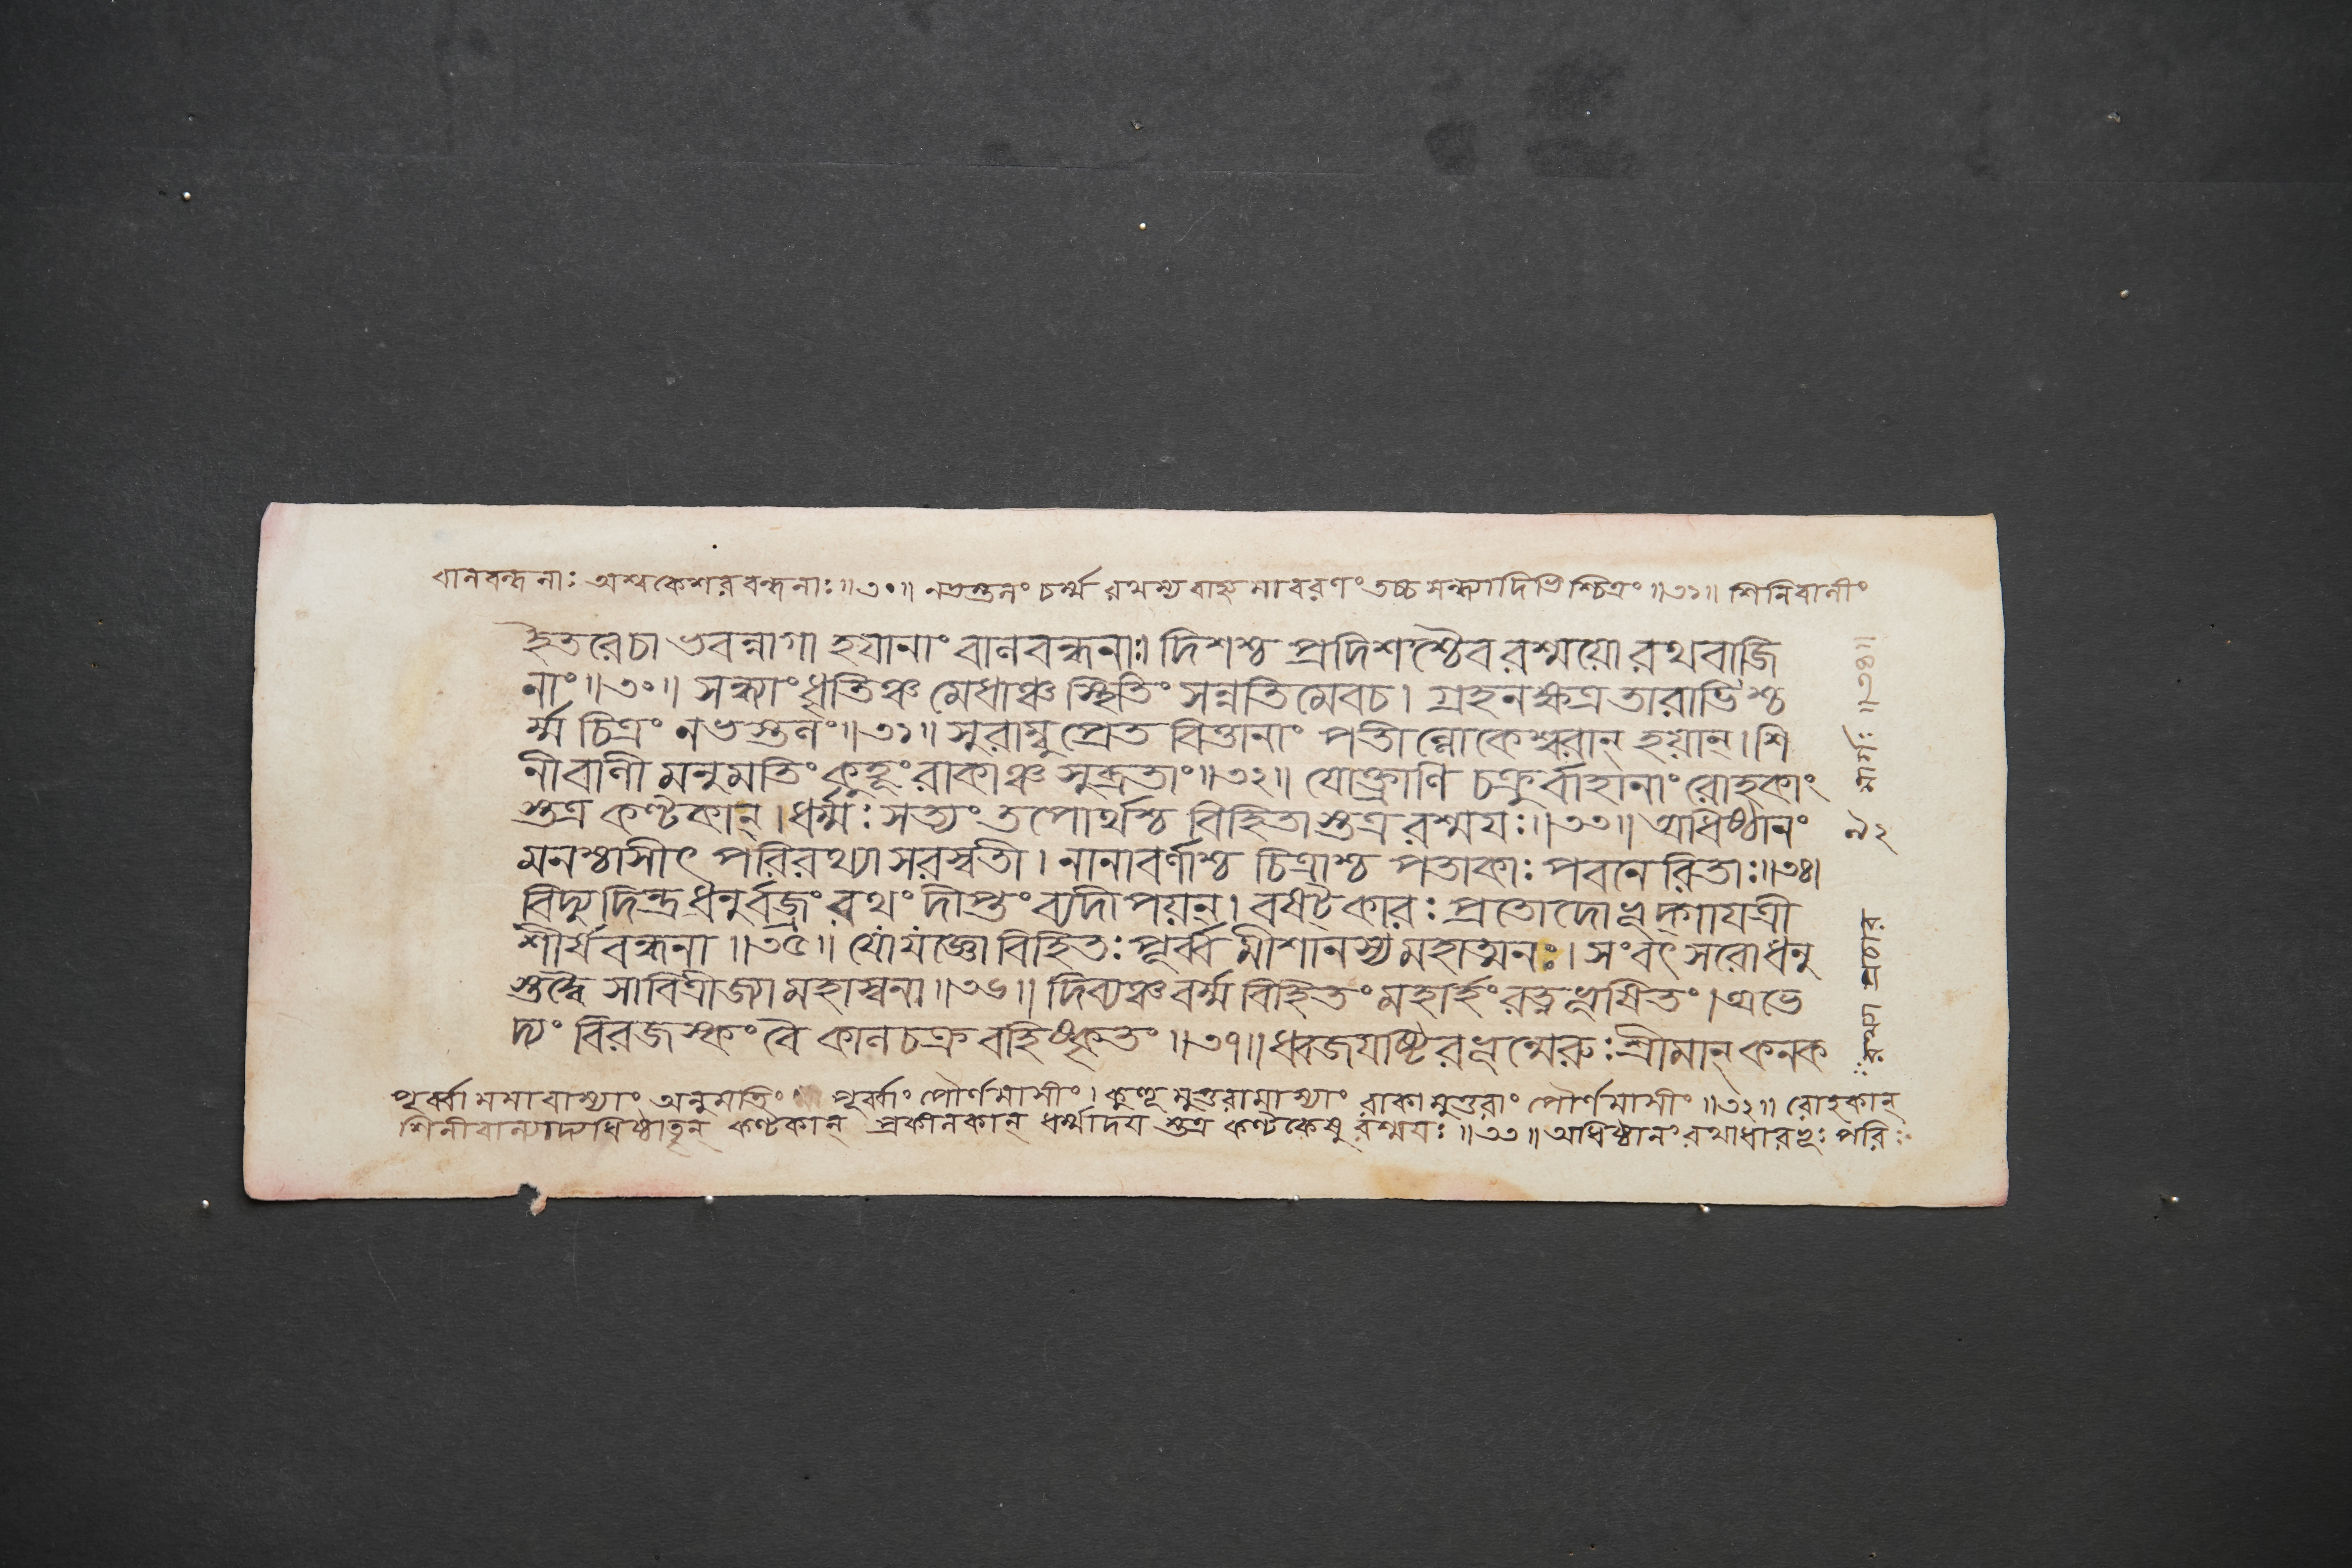 বানবন্ধনাঃ অশ্বকেশর বন্ধনাঃ॥৩০॥ নভস্তলং চর্ম্ম রথস্য বাহ্যমাবরণং তচ্চ সন্ধ্যাদিভিশ্চিত্রং॥৩১॥ শিনিবালীং
হৈতরেচা ভবন্নাগা হয়ানাং বাণবন্ধনাঃ। দিশশ্চ প্রদিশশ্চৈব রশ্ময়ো রথবাজি
নাং॥৩০॥ সন্ধ্যাং ধৃতিঞ্চ মেধাঞ্চ স্থিতিং সন্নতিমেবচ। গ্রহনক্ষত্রতারাভিশ্চ
র্ম্ম চিত্রং নভস্তলং॥৩১॥ সুরাম্বুপ্রেত বিত্তানাং পতীল্লোকেশ্বরান্ হয়ান্। শি
নীবালী মনুমতিং কুহূং রাকাঞ্চ সুব্রতাং॥৩২॥ যোক্ত্রাণি চক্রুর্বাহানাং রোহকাং
স্তত্র কণ্টকান্। ধর্ম্মঃ সত্যং তপোর্থশ্চ বিহিতাস্তত্র রশ্ময়ঃ॥৩৩॥ অধিষ্ঠানং
মনশ্চাসীৎ পরিরথ্যা সরস্বতী। নানাবর্ণাশ্চ চিত্রাশ্চ পতাকাঃ পবনেরিতাঃ॥৩৪।
বিদ্যুদিন্দ্রধনুর্বজ্রং রথং দীপ্তং ব্যদীপয়ন্। বষট্কারঃ প্রতোদোভূদ্গায়ত্রী
শীর্ষবন্ধনা॥৩৫॥ যোযজ্ঞো বিহিতঃ পূর্ব্ব মীশানস্য মহাত্মনঃ। সংবৎসরোধনু
স্তদ্বৈ সাবিত্রীজ্যা মহাস্বনা॥৩৬॥ দিব্যঞ্চ বর্ম্ম বিহিতং মহার্হং রত্নভূষিতং। অভে
দ্যং বিরজস্কং বৈ কালচক্র বহিষ্কৃতং॥৩৭॥ ধ্বজযষ্টিরভূন্মেরুঃ শ্রীমান্ কনক
পূর্ব্বামমাবাস্যাং অনুমতিং পূর্ব্বাং পৌর্ণমাসীং। কুহূমুত্তরামমাস্যাং রাকামুত্তরাং পৌর্ণমাসীং॥৩২॥ রোহকান্
শিনীবাল্যাদ্যধিষ্ঠাতৃন্ কণ্টকান্ প্রকীলকান্ ধর্ম্মাদয়স্তত্র কণ্টকেষু রশ্ময়ঃ॥৩৩॥ অধিষ্ঠানং রথাধারভূঃ পরি